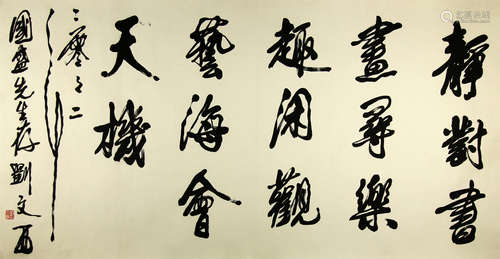 靜對書
畫尋樂
趣閑觀
藝海會
天機
二零零二年
國盛先生存 劉文西